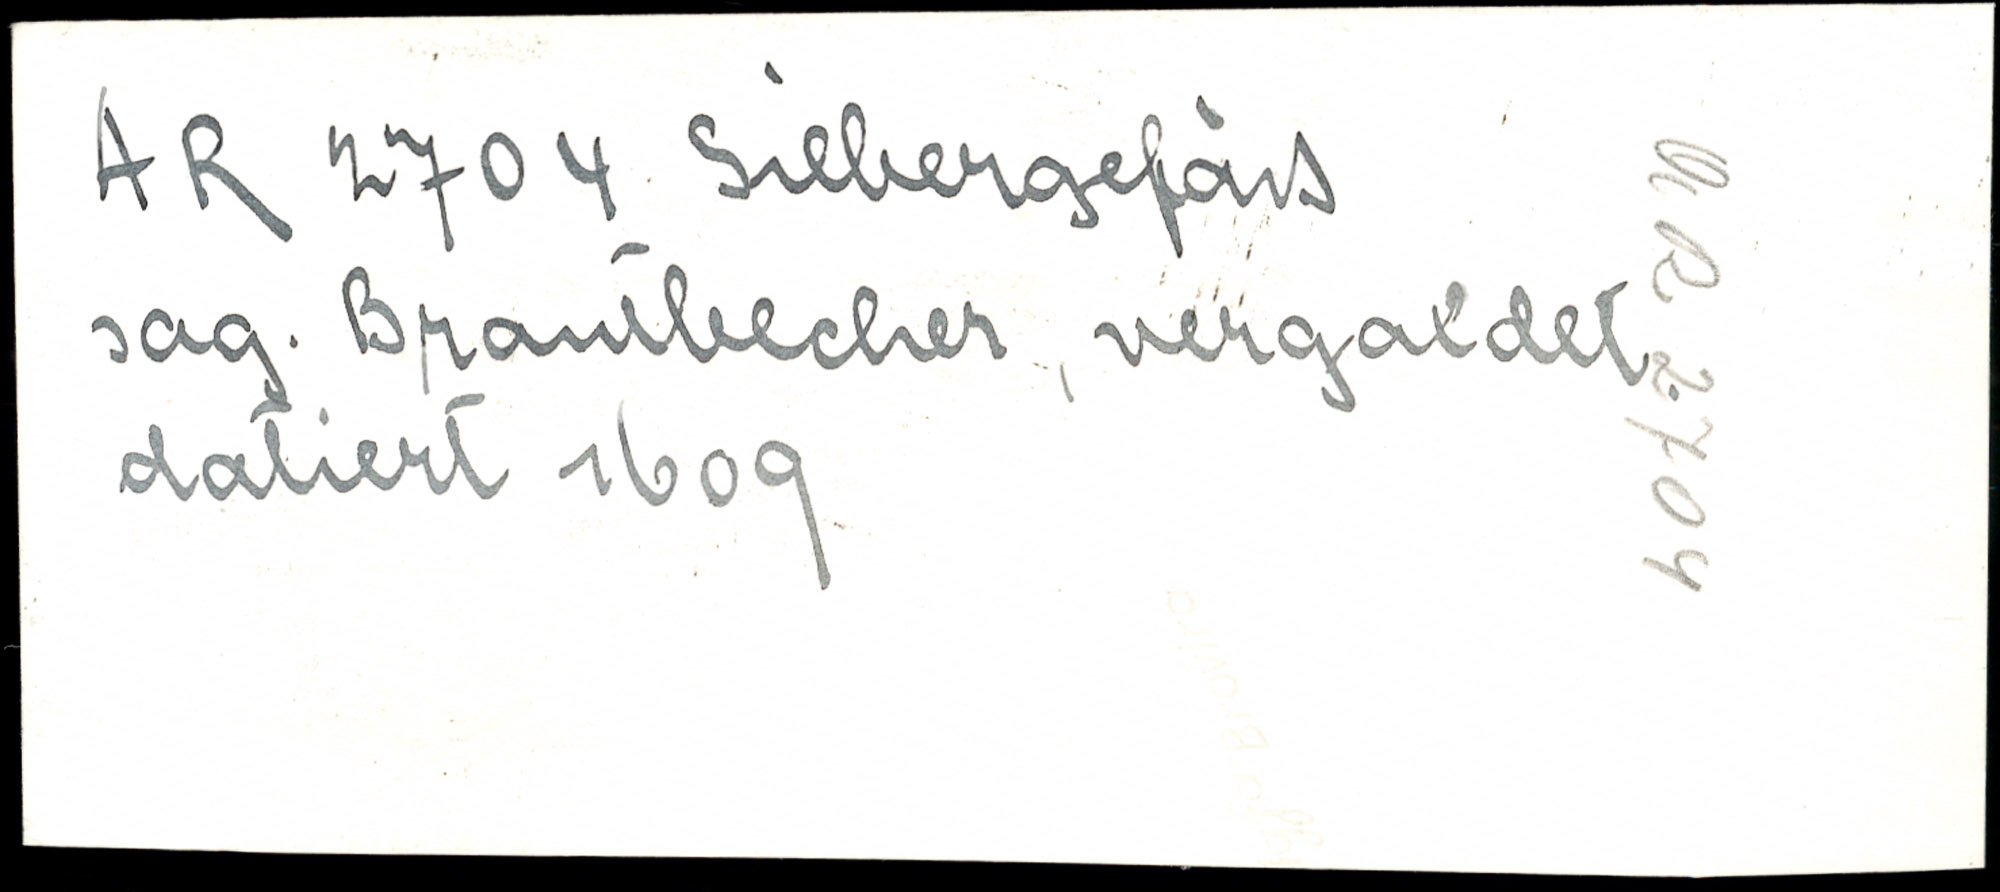 AR 2704 Silbergefäss
sag. Brautbecher, vergoldet
datiert 1609
AR 2704